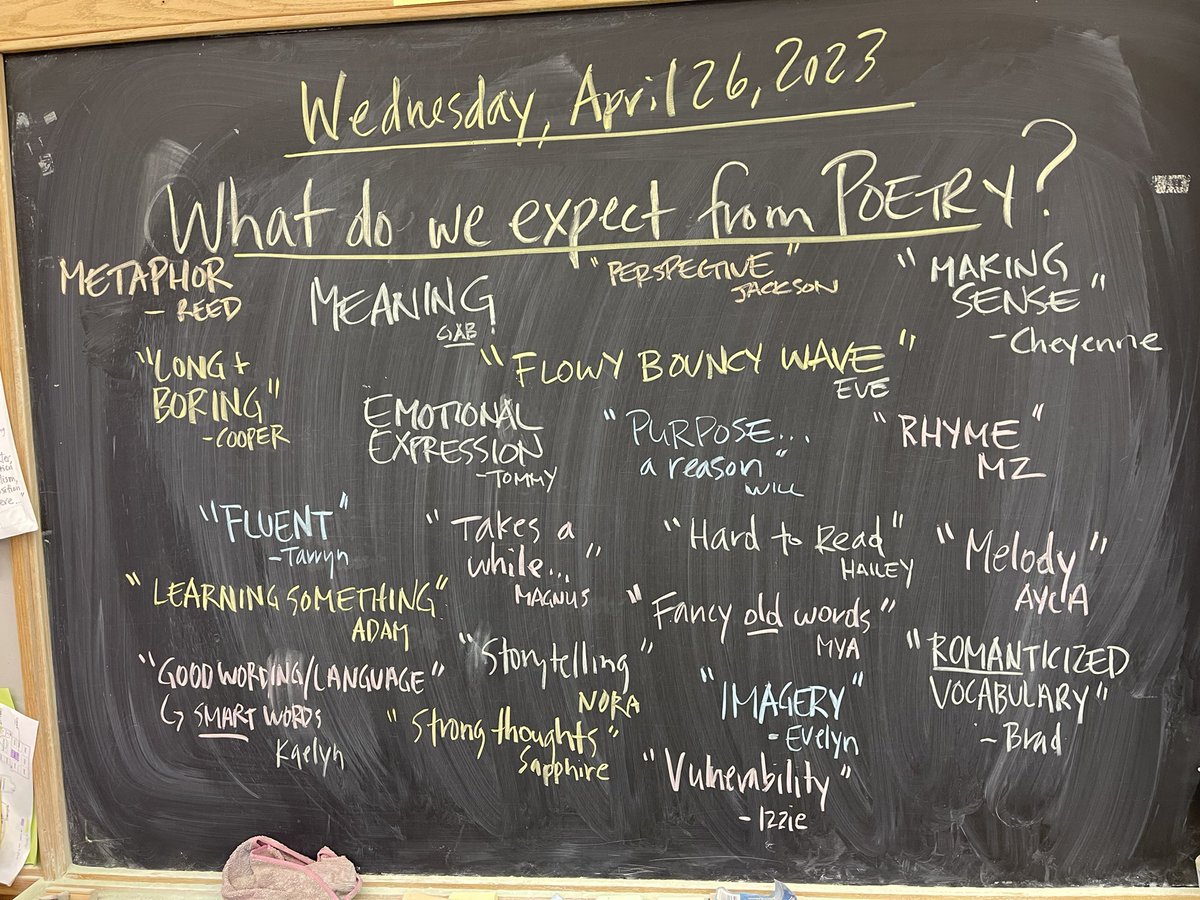 Wednesday, April 26, 2023
What do we expect from POETRY?
METAPHOR
- REED
MEANING
GAB
"PERSPECTIVE"
JACKSON
"MAKING
SENSE"
- Cheyenne
"LONG +
BORING"
- COOPER
"FLOWY BOUNCY WAVE"
EVE
EMOTIONAL
EXPRESSION
- TOMMY
"PURPOSE...
a reason"
WILL
"RHYME"
MZ
"FLUENT"
- Tarryn
"Takes a
while..."
MAGNUS
"Hard to Read"
HAILEY
"Melody"
AYCA
"LEARNING SOMETHING"
ADAM
"Fancy old words"
MYA
"GOOD WORDING/LANGUAGE"
↳ SMART WORDS
Kaelyn
"Storytelling"
NORA
"IMAGERY"
- Evelyn
"ROMANTICIZED
VOCABULARY"
- Brad
"Strong thoughts"
Sapphire
"Vulnerability"
- Izzie